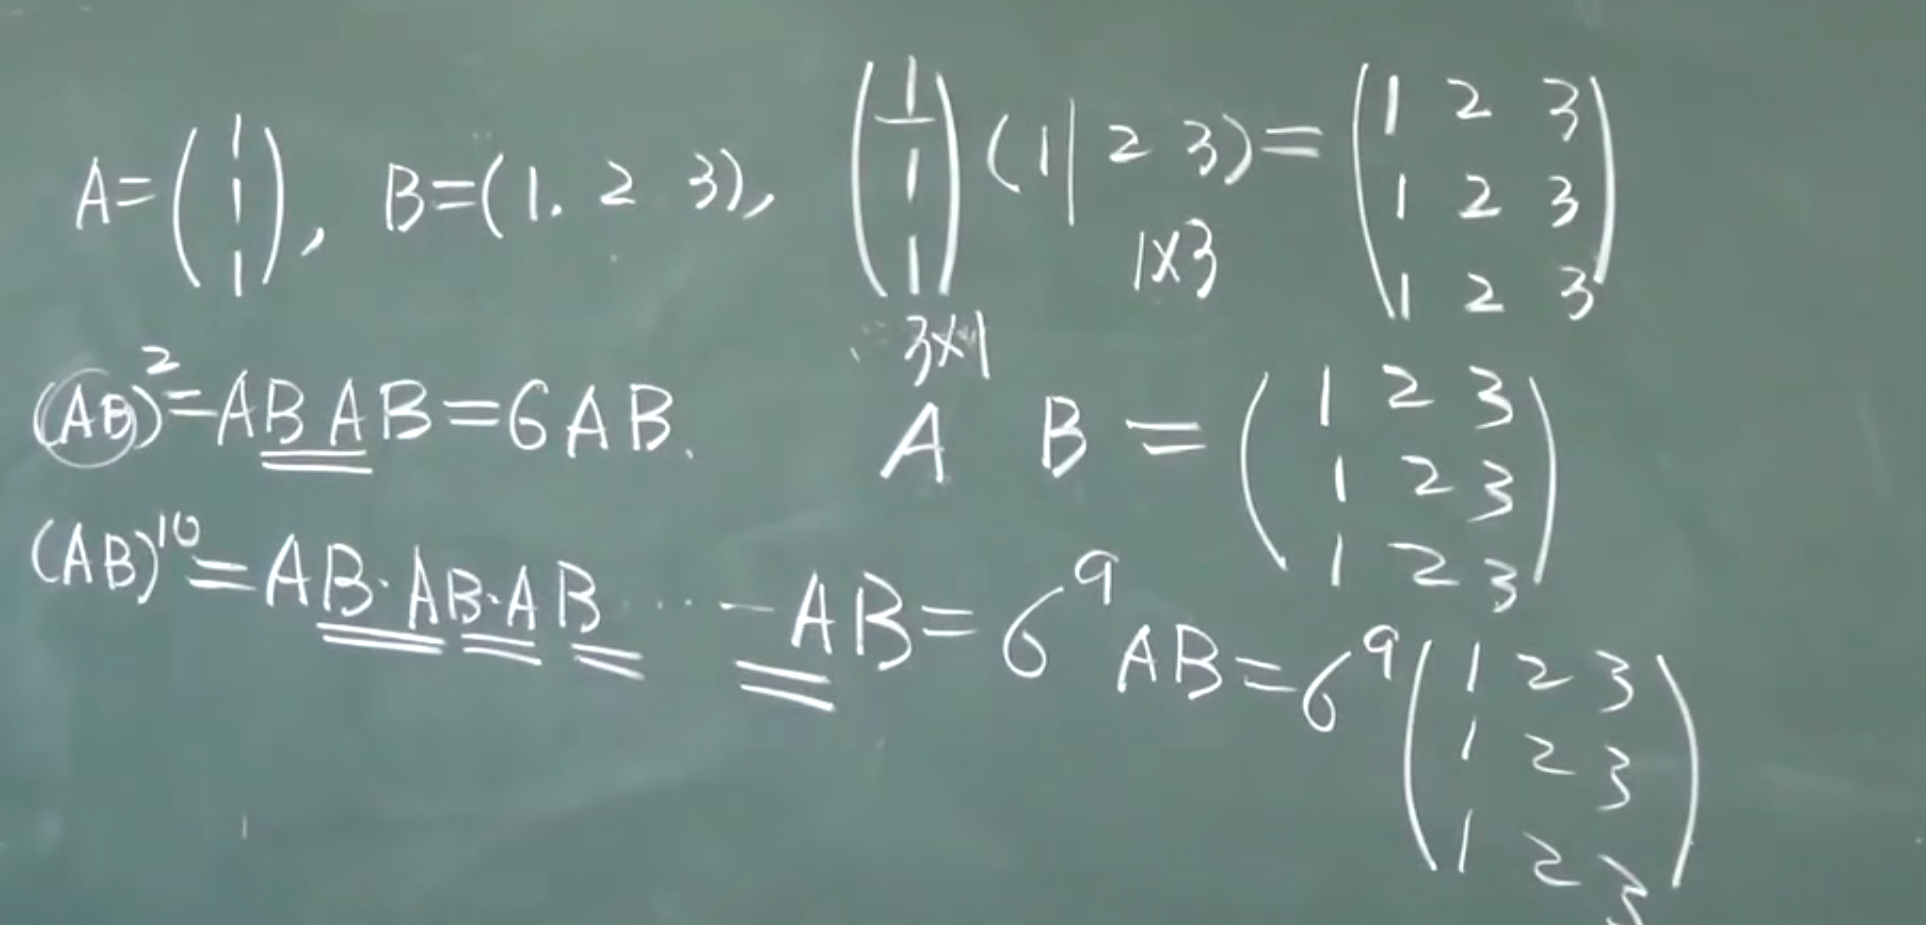 A=(1 1 1), B=(1. 2 3), (1 1 1)(1| 2 3)=(1 2 3
1 2 3
1 2 3)
3×1 1×3
(AB)²=ABAB=6AB.
A B = (1 2 3
1 2 3
1 2 3)
(AB)¹⁰=AB·AB·AB···-AB=6⁹AB=6⁹(1 2 3
1 2 3
1 2 3)